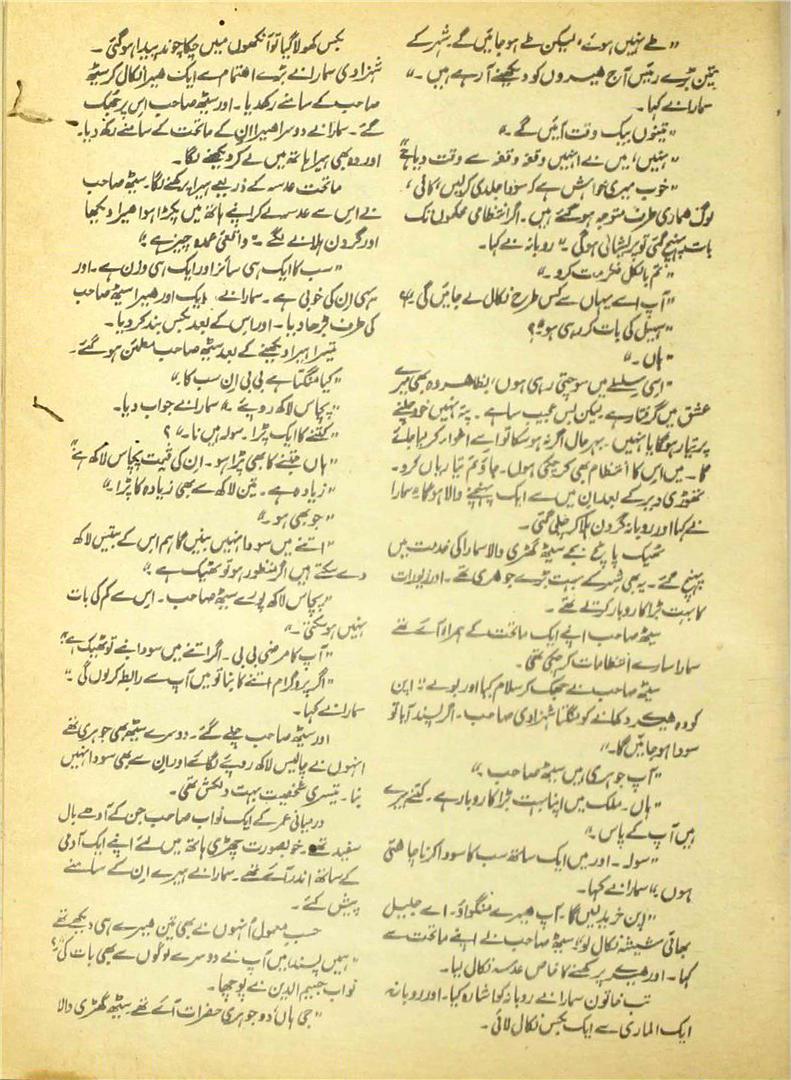 ”طے نہیں ہوئے، لیکن طے ہو جائیں گے۔ شہر کے
تین بڑے رئیس آج ہیروں کو دیکھنے آ رہے ہیں۔“
سمارا نے کہا۔
”تینوں بیک وقت آئیں گے۔“
”نہیں، میں نے انہیں وقفہ وقفہ سے وقت دیا ہے“
”خوب میری خواہش ہے کہ سودا جلدی کر لیں، کافی،
لوگ ہماری طرف متوجہ ہو گئے ہیں۔ اگر انتظامی محکموں تک
بات پہنچ گئی تو پریشانی ہوگی۔“ روبانہ نے کہا۔
”تم بالکل فکر مت کرو۔“
”آپ اسے یہاں سے کس طرح نکال لے جائیں گی؟“
”سہیل کی بات کر رہی ہو؟“
”ہاں۔“
”اسی سلسلے میں سوچتی رہی ہوں، بظاہر وہ بھی میرے
عشق میں گرفتار ہے لیکن بس عجیب سا ہے۔ پتہ نہیں خود چلنے
پر تیار ہوگا یا نہیں۔ بہرحال اگر نہ ہو سکا تو اسے اغوا کر لیا جائے
گا۔ میں اس کا انتظام بھی کر چکی ہوں۔ جاؤ تم تیاریاں کرو۔
تھوڑی دیر کے بعد ان میں سے ایک پہنچنے والا ہوگا“ سمارا
نے کہا اور روبانہ گردن ہلا کر چلی گئی۔
ٹھیک پانچ بجے سیٹھ گھڑی والا سمارا کی خدمت میں
پہنچ گئے۔ یہ بھی شہر کے بہت بڑے جوہری تھے۔ اور زیورات
کا بہت بڑا کاروبار کرتے تھے۔
سیٹھ صاحب اپنے ایک ماتحت کے ہمراہ آئے تھے
سمارا سارے انتظامات کر چکی تھی۔
سیٹھ صاحب نے جھک کر سلام کیا اور بولے ”اپن
کو وہ ہیرے دکھانے کو مانگتا شہزادی صاحب۔ اگر پسند آیا تو
سودا ہو جائیں گا۔“
”آپ جوہری ہیں سیٹھ صاحب۔“
”ہاں۔ ملک میں اپنا بہت بڑا کاروبار ہے۔ کتنے ہیرے
ہیں آپ کے پاس۔“
”سولہ۔ اور میں ایک ساتھ سب کا سودا کرنا چاہتی
ہوں“ سمارا نے کہا۔
”اپن خرید لیں گا۔ آپ ہیرے منگواؤ۔ اے جلیل
بھائی شیشہ نکال لو“ سیٹھ صاحب نے اپنے ماتحت سے
کہا۔ اور ہیرے پرکھنے کا خاص عدسہ نکال لیا۔
تب خاتون سمارا نے روبانہ کو اشارہ کیا۔ اور روبانہ
ایک الماری سے ایک بکس نکال لائی۔
بکس کھولا گیا تو آنکھوں میں چکا چوند پیدا ہو گئی۔
شہزادی سمارا نے بڑے اہتمام سے ایک ہیرا نکال کر سیٹھ
صاحب کے سامنے رکھ دیا۔ اور سیٹھ صاحب اس پر جھک
گئے۔ سمارا نے دوسرا ہیرا ان کے ماتحت کے سامنے رکھ دیا۔
اور وہ بھی ہیرا ہاتھ میں لے کر دیکھنے لگا۔
ماتحت عدسہ کے ذریعے ہیرا پرکھنے لگا۔ سیٹھ صاحب
نے اس سے عدسہ لے کر اپنے ہاتھ میں پکڑا ہوا ہیرا دیکھا
اور گردن ہلانے لگے۔ ”واقعی عمدہ چیز ہے“
”سب کا ایک ہی سائز اور ایک ہی وزن ہے۔ اور
یہی ان کی خوبی ہے۔ سمارا نے، ایک اور ہیرا سیٹھ صاحب
کی طرف بڑھا دیا۔ اور اس کے بعد بکس بند کر دیا۔
تیسرا ہیرا دیکھنے کے بعد سیٹھ صاحب مطمئن ہو گئے۔
”کیا مانگتا ہے بی بی ان سب کا۔“
”پچاس لاکھ روپے۔“ سمارا نے جواب دیا۔
”کتنے کا ایک پڑا۔ سولہ ہیں نا۔“؟
”ہاں جتنے کا بھی پڑا ہو۔ ان کی قیمت پچاس لاکھ ہے“
”زیادہ ہے۔ تین لاکھ سے بھی زیادہ کا پڑا۔“
”جو بھی ہو۔“
”اتنے میں سودا نہیں بنیں گا ہم اس کے بتیس لاکھ
دے سکتے ہیں اگر منظور ہو تو ٹھیک ہے“
”پچاس لاکھ پورے سیٹھ صاحب۔ اس سے کم کی بات
نہیں ہو سکتی۔“
”آپ کا مرضی بی بی۔ اگر اتنے میں سودا بنے تو ٹھیک ہے“
”اگر پروگرام اتنے کا بنا تو میں آپ سے رابطہ کر لوں گی“
سمارا نے کہا۔
اور سیٹھ صاحب چلے گئے۔ دوسرے سیٹھ بھی جوہری تھے
انہوں نے چالیس لاکھ روپے لگائے اور ان سے بھی سودا نہیں
بنا۔ تیسری شخصیت بہت دلکش تھی۔
درمیانی عمر کے ایک نواب صاحب جن کے آدھے بال
سفید تھے۔ خوبصورت چھڑی ہاتھ میں لئے اپنے ایک آدمی
کے ساتھ اندر آئے تھے۔ سمارا نے ہیرے ان کے سامنے
پیش کئے۔
حسب معمول انہوں نے بھی تین ہیرے ہی دیکھے تھے
”ہمیں پسند ہیں آپ نے دوسرے لوگوں سے بھی بات کی“؟
نواب جسیم الدین نے پوچھا۔
”جی ہاں دو جوہری حضرات آئے تھے سیٹھ گھڑی والا